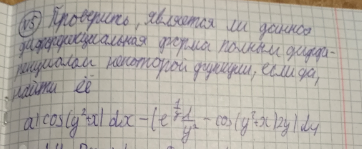 №5) Проверить, является ли данная
дифференциальная форма полным диффе-
ренциалом некоторой функции, если да,
найти её
a) cos(y²+x) dx - (e^{1/y} 1/y² - cos(y²+x)2y) dy